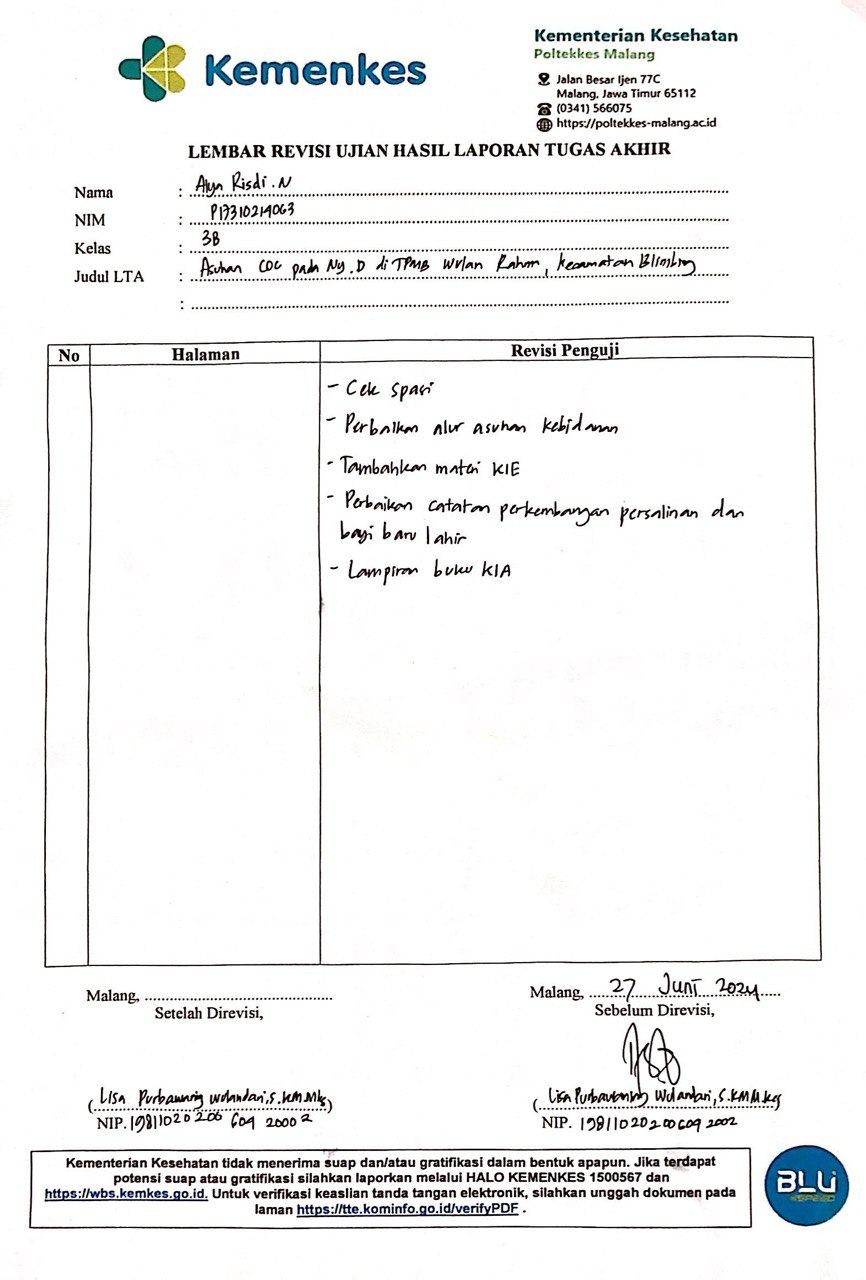 Kemenkes
Kementerian Kesehatan
Poltekkes Malang
Jalan Besar Ijen 77C
Malang, Jawa Timur 65112
(0341) 566075
https://poltekkes-malang.ac.id
LEMBAR REVISI UJIAN HASIL LAPORAN TUGAS AKHIR
Nama : Alya Risdi.N
NIM : P17310214063
Kelas : 3B
Judul LTA : Asuhan COC pada Ny.D di TPMB Wulan Rahm, Kecamatan Blimbing
:
No Halaman Revisi Penguji
- Cek spasi
- Perbaikan alur asuhan kebidanan
- Tambahkan materi KIE
- Perbaikan catatan perkembangan persalinan dan
bayi baru lahir
- Lampiran buku KIA
Malang, Malang, 27 Juni 2024
Setelah Direvisi, Sebelum Direvisi,
(Lisa Purbawaning Wulandari, S.KM M.Kes) (Lisa Purbawaning Wulandari, S.KM M.Kes
NIP. NIP. 198110202006042002
Kementerian Kesehatan tidak menerima suap dan/atau gratifikasi dalam bentuk apapun. Jika terdapat
potensi suap atau gratifikasi silahkan laporkan melalui HALO KEMENKES 1500567 dan
https://wbs.kemkes.go.id. Untuk verifikasi keaslian tanda tangan elektronik, silahkan unggah dokumen pada
laman https://tte.kominfo.go.id/verifyPDF .
BLU